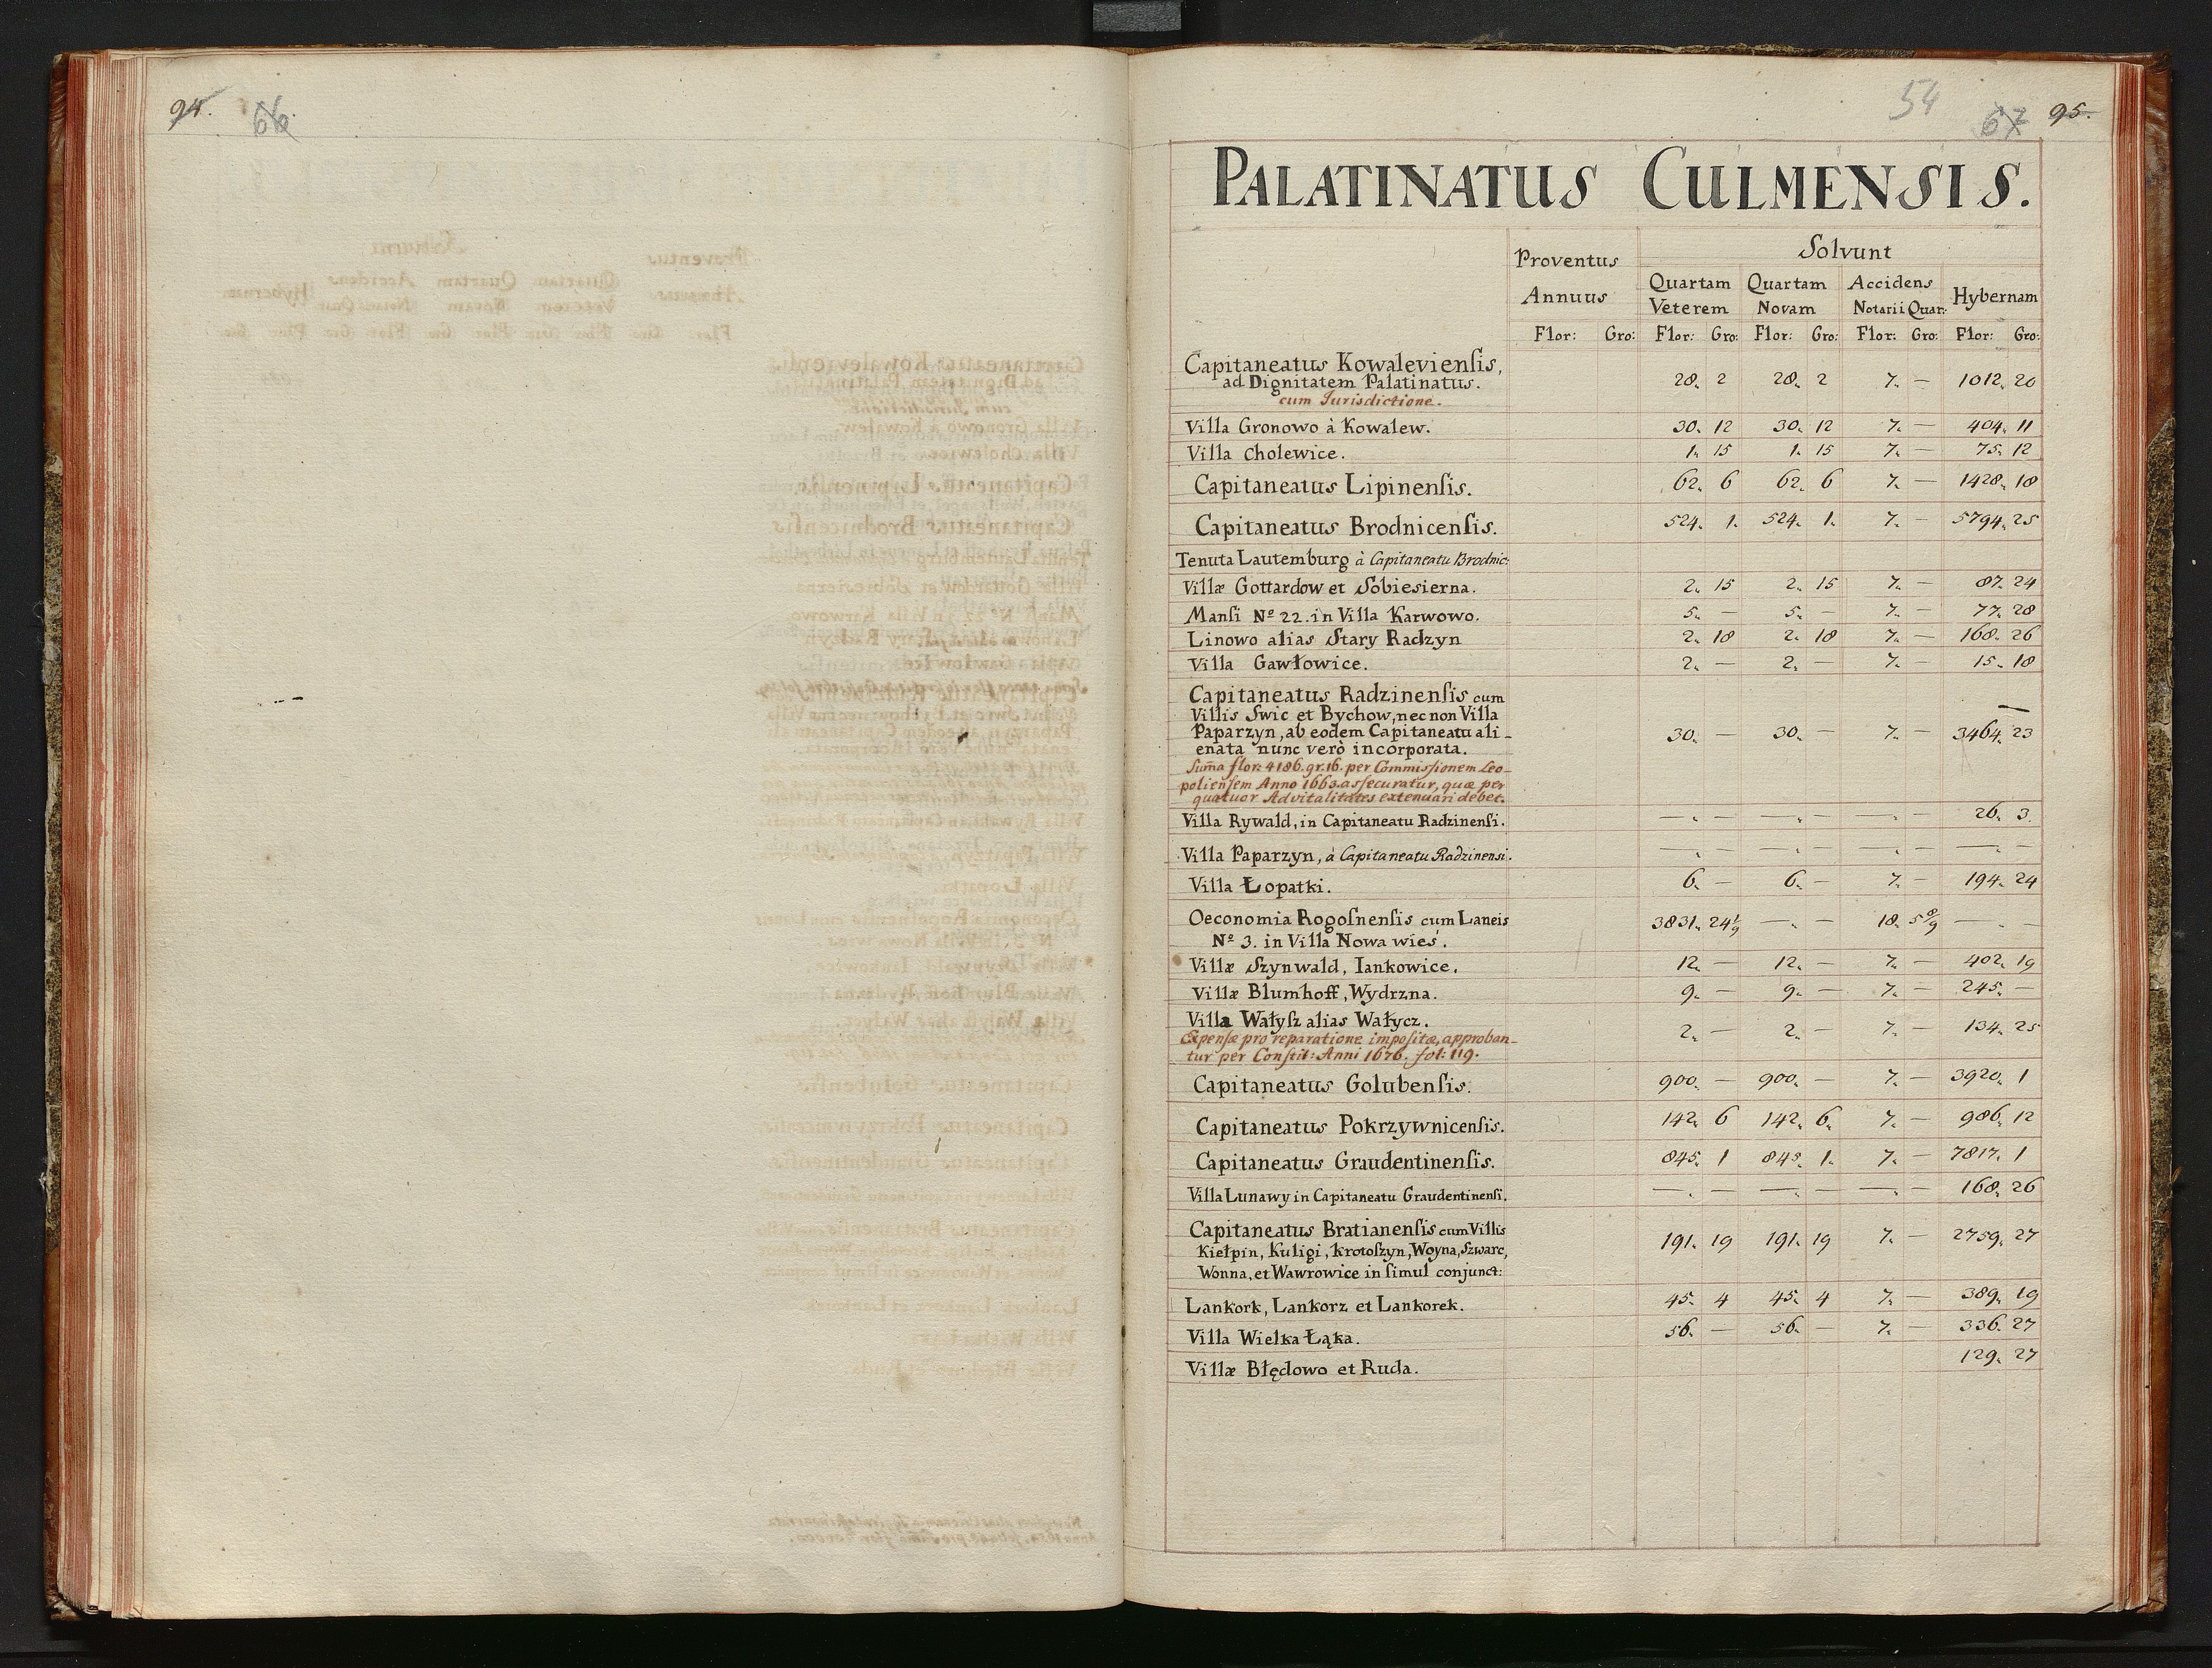 94.
66.
54
67
95.
PALATINATUS CULMENSIS.
Proventus Annuus
Solvunt
Quartam Veterem Quartam Novam Accidens Notarii Quar: Hybernam
Flor: Gro: Flor: Gro: Flor: Gro: Flor: Gro: Flor: Gro:
Capitaneatus Kowalevienſis,
ad Dignitatem Palatinatus. 28. 2 28. 2 7. — 1012. 20
cum Jurisdictione.
Villa Gronowo à Kowalew. 30. 12 30. 12 7. — 404. 11
Villa Cholewice. 1. 15 1. 15 7. — 75. 12
Capitaneatus Lipinenſis. 62. 6 62. 6 7. — 1428. 18
Capitaneatus Brodnicenſis. 524. 1. 524. 1. 7. — 5794. 25
Tenuta Lautemburg à Capitaneatu Brodnic:
Villæ Gottardow et Sobiesierna. 2. 15 2. 15 7. — 87. 24
Manſi Nº 22. in Villa Karwowo. 5. — 5. — 7. — 77. 28
Linowo alias Stary Radzyn 2. 18 2. 18 7. — 168. 26
Villa Gawłowice. 2. — 2. — 7. — 15. 18
Capitaneatus Radzinenſis cum
Villis Swic et Bychow, nec non Villa
Paparzyn, ab eodem Capitaneatu ali- 30. — 30. — 7. — 3464. 23
enata nunc verò incorporata.
Sum̃a flor: 4186. gr. 16. per Commiſſionem Leo-
polienſem Anno 1663. aſsecuratur, quæ per
quatuor Advitalitates extenuari debet.
Villa Rywald, in Capitaneatu Radzinenſi. —. — —. — —. — 26. 3.
Villa Paparzyn, à Capitaneatu Radzinensi. —. — —. — —. — —. —
Villa Łopatki. 6. — 6. — 7. — 194. 24
Oeconomia Rogoſnenſis cum Laneis 3831. 24 1/9 —. — 18. 5 8/9 —. —
Nº 3. in Villa Nowa wieś.
Villæ Szynwald, Iankowice. 12. — 12. — 7. — 402. 19
Villæ Blumhoff, Wydrzna. 9. — 9. — 7. — 245. —
Villa Wałyſz alias Wałycz. 2. — 2. — 7. — 134. 25
Expenſæ pro reparatione impoſitæ, approban-
tur per Conſtit: Anni 1676. fol: 119.
Capitaneatus Golubenſis. 900. — 900. — 7. — 3920. 1
Capitaneatus Pokrzywnicenſis. 142. 6 142. 6. 7. — 986. 12
Capitaneatus Graudentinenſis. 845. 1 845. 1. 7. — 7817. 1
Villa Lunawy in Capitaneatu Graudentinenſi. —. — —. — —. — 168. 26
Capitaneatus Bratianenſis cum Villis
Kiełpin, Kuligi, Krotoſzyn, Woyna, Szwarc, 191. 19 191. 19 7. — 2759. 27
Wonna, et Wawrowice in ſimul conjunct:
Lankork, Lankorz et Lankorek. 45. 4 45. 4 7. — 389. 19
Villa Wielka Łąka. 56. — 56. — 7. — 336. 27
Villæ Błędowo et Ruda. 129. 27